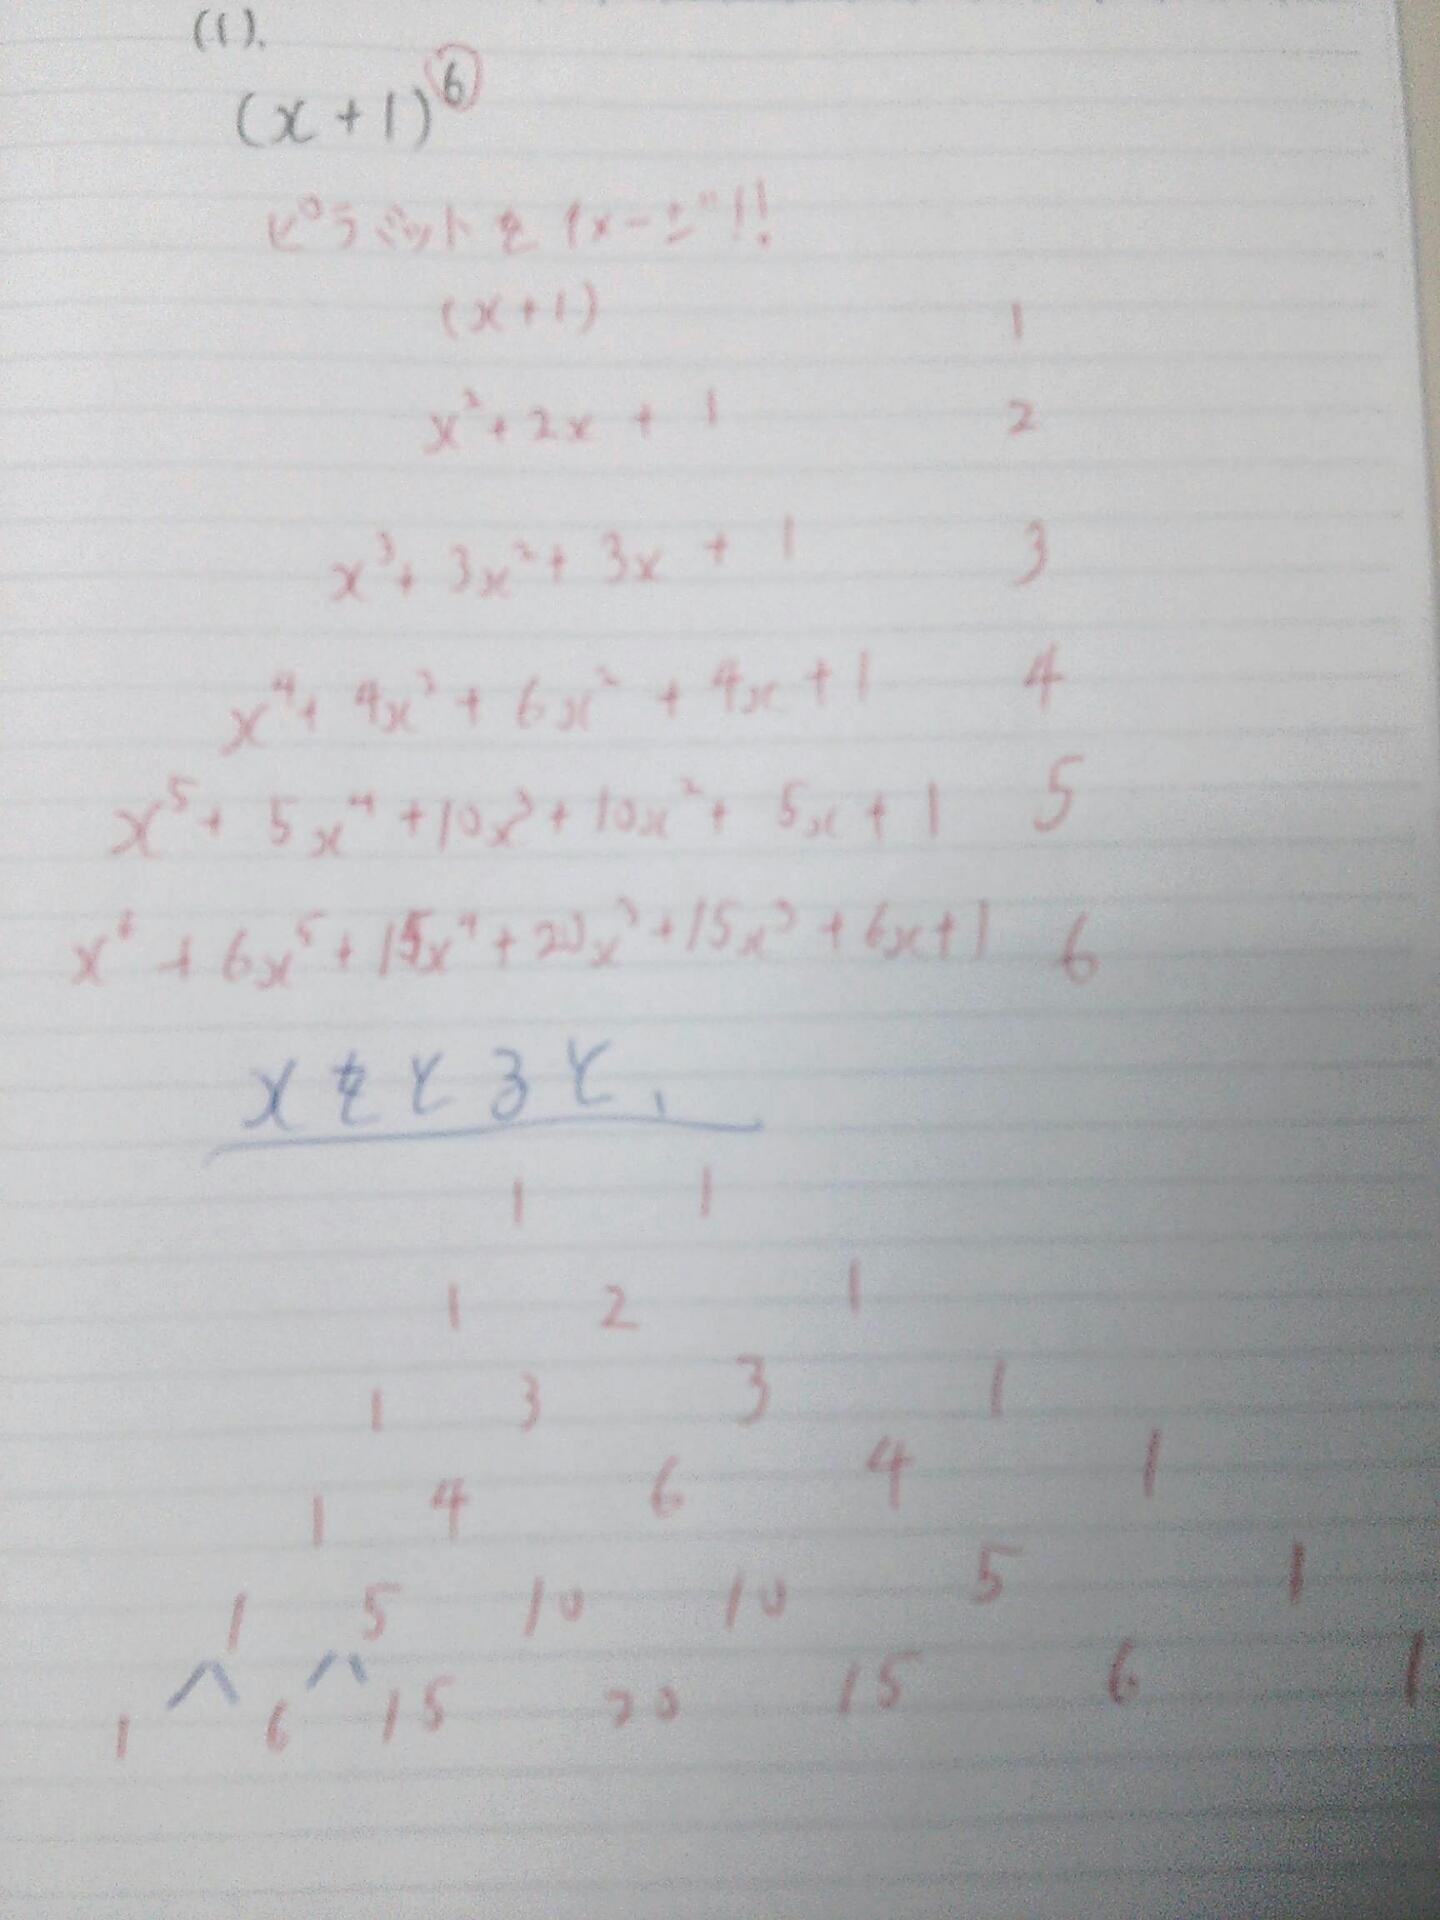 (1).
(x+1)⁶
ピラミットをイメージ!!
(x+1) 1
x²+2x+1 2
x³+3x²+3x+1 3
x⁴+4x³+6x²+4x+1 4
x⁵+5x⁴+10x³+10x²+5x+1 5
x⁶+6x⁵+15x⁴+20x³+15x³+6x+1 6
xをとると、
1 1
1 2 1
1 3 3 1
1 4 6 4 1
1 5 10 10 5 1
1 6 15 20 15 6 1